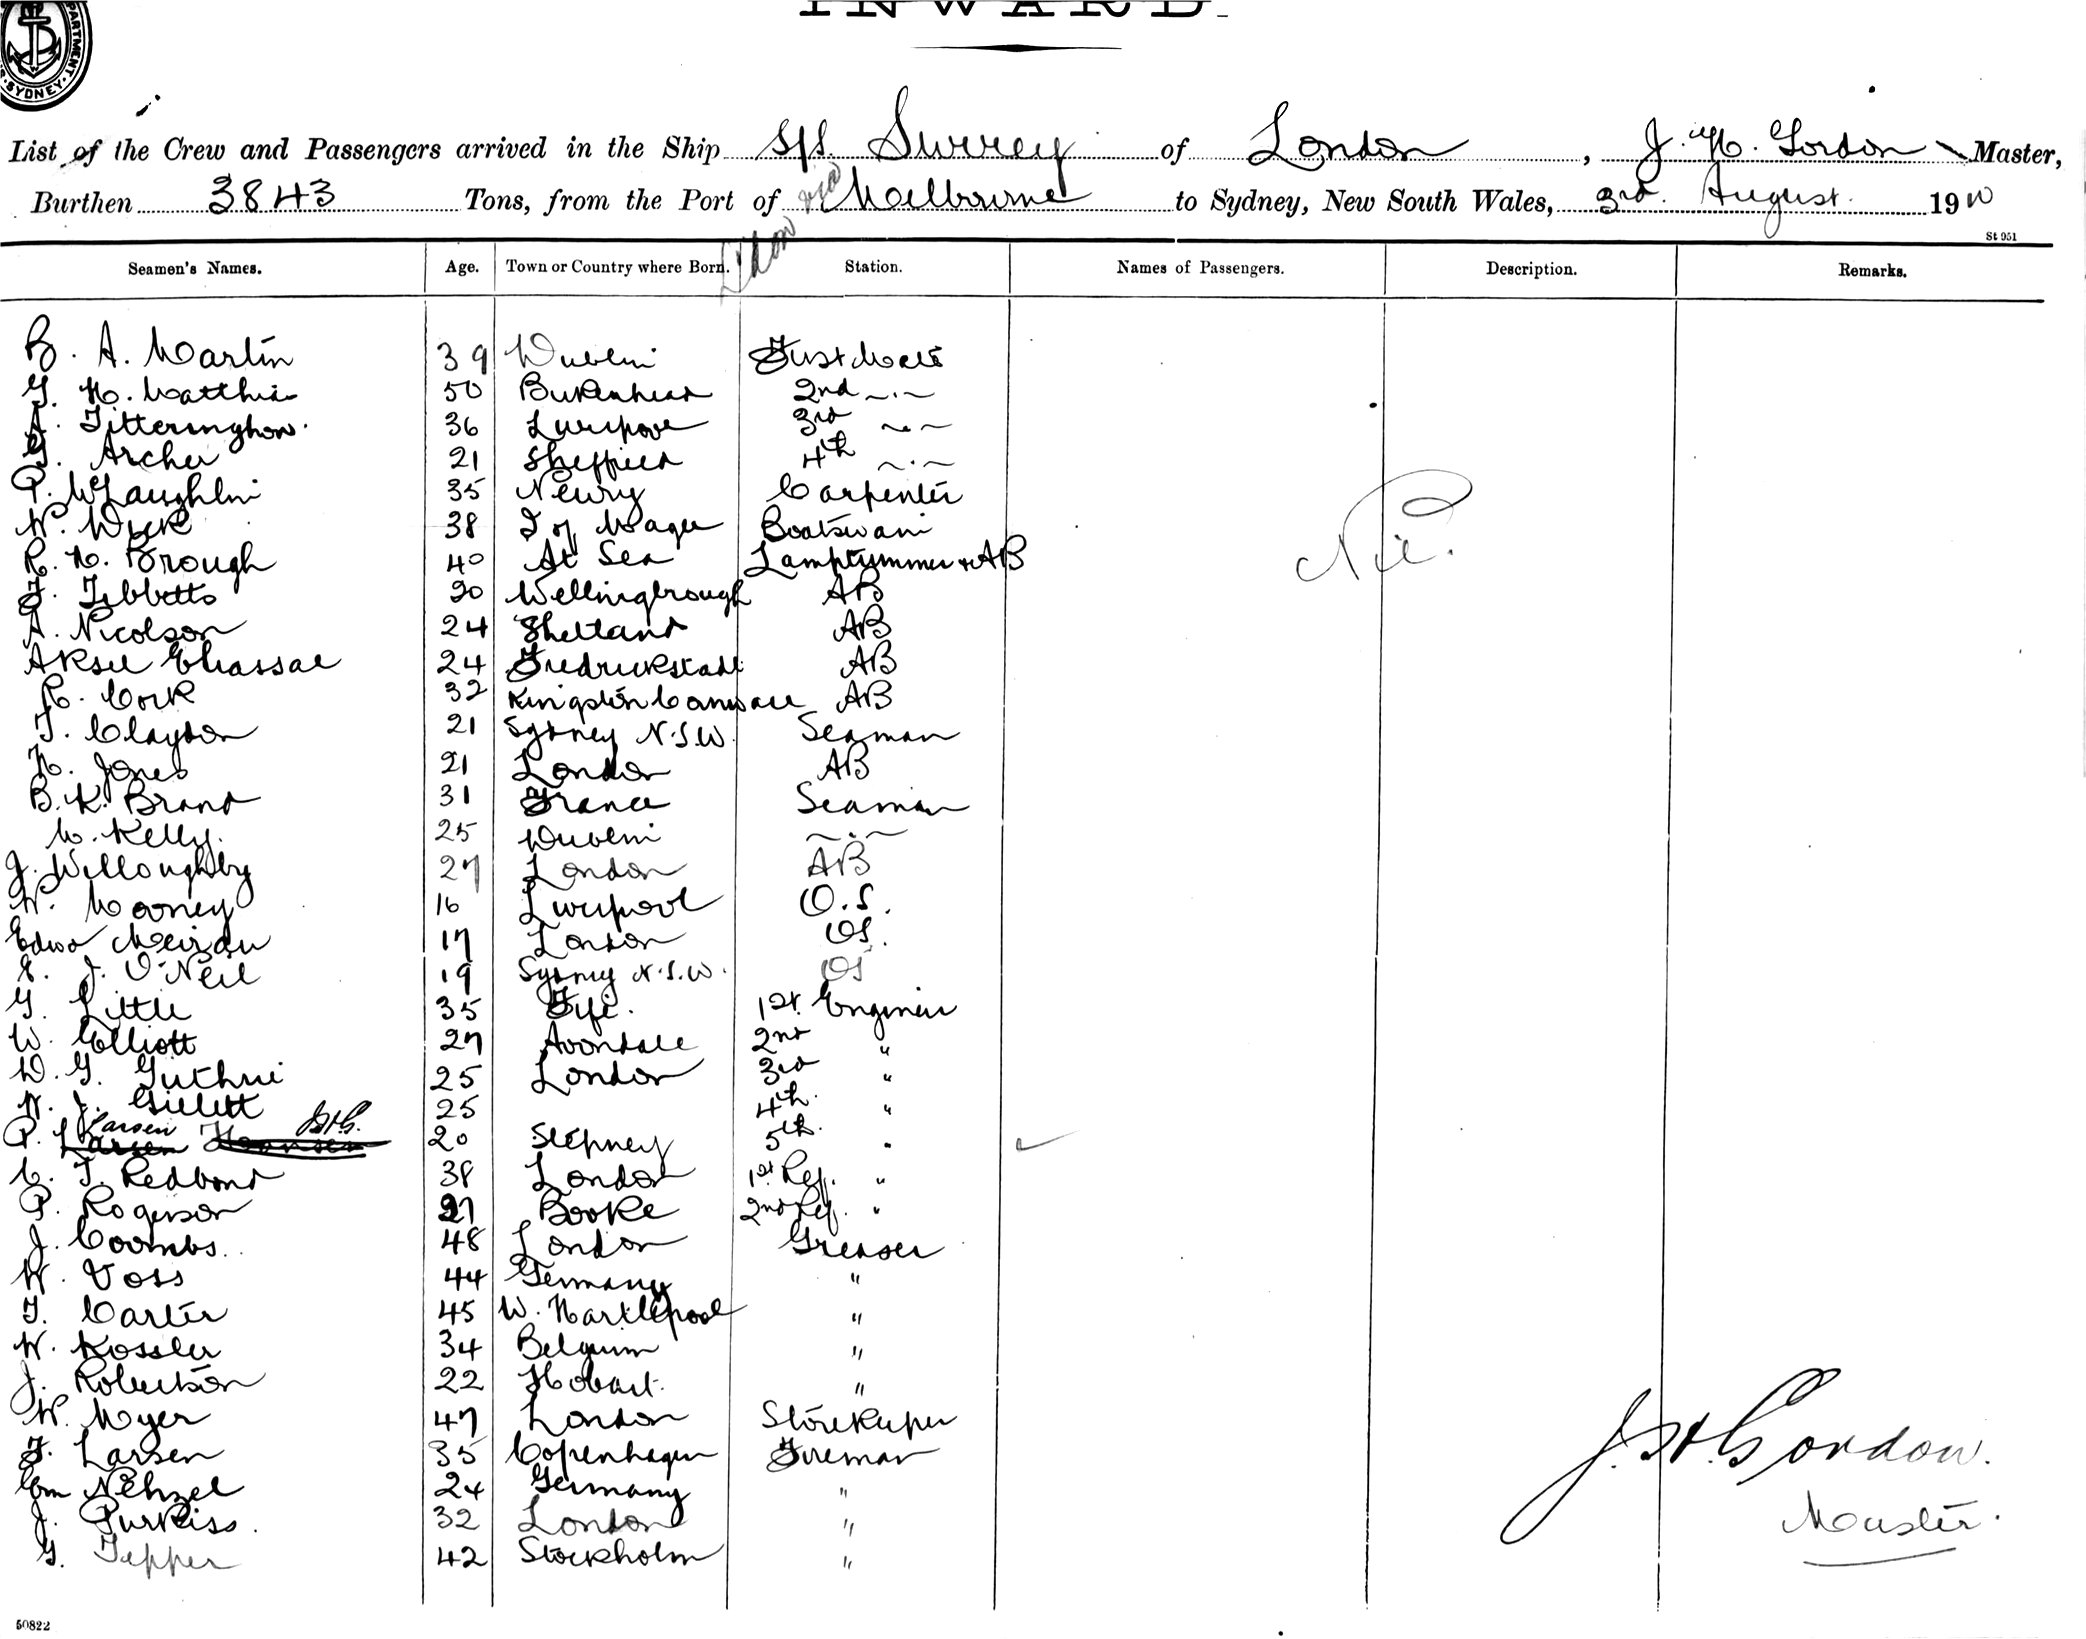 INWARD.
DEPARTMENT. SYDNEY.
List of the Crew and Passengers arrived in the Ship S/S. Surrey of London, J. H. Gordon Master,
Burthen 3843 Tons, from the Port of London via Melbourne to Sydney, New South Wales, 3rd. August. 1910
St 951
Seamen's Names. Age. Town or Country where Born. Station. Names of Passengers. Description. Remarks.
B. A. Martin 39 Dublin First Mate
G. H. Matthias 50 Birkenhead 2nd ~.~
A. Titterington. 36 Liverpool 3rd ~.~
G. Archer 21 Sheffield 4th ~.~
P. McLaughlin 35 Newry Carpenter
W. Wick 38 I of Magee Boatswain
R. H. Brough 40 At Sea Lamptrimmer & AB
F. Tebbetts 20 Wellingbrough AB
A. Nicolson 24 Shetland AB
Aksel 24 Fredrickstadt AB
R. Cork 32 Kingston Canada AB
T. Clayton 21 Sydney N.S.W. Seaman
H. Jones 21 London AB
B. K. Brand 31 France Seaman
M. Kelly. 25 Dublin ~.~
J. Willoughby 27 London AB
W. Mooney 16 Liverpool O.S.
Edwd 17 London OS.
E. J. O'Neil 19 Sydney N.S.W. OS
G. Little 35 Fife. 1st. Engineer
W. Elliott 27 Avondale 2nd "
D. G. Guthrie 25 London 3rd "
H. J. Gillett 25 4th. "
P. Larsen Larsen Hannsen JHG. 20 Stepney 5th. "
C. T. Redbond 38 London 1st Ref. "
P. Rogerson 27 Booke 2nd Ref. "
J. Coombs. 48 London Greaser
W. Voss 44 Germany "
T. Carter 45 W. Hartlepool "
W. Kossler 34 Belguim "
J. Robertson 22 Hobart. "
W. Moyer 47 London Storekeeper
F. Larsen 35 Copenhagen Fireman
Em Nehzel 24 Germany "
J. Purkiss. 32 London "
G. Tepper 42 Stockholm "
Nil.
J. H. Gordon.
Master.
50822